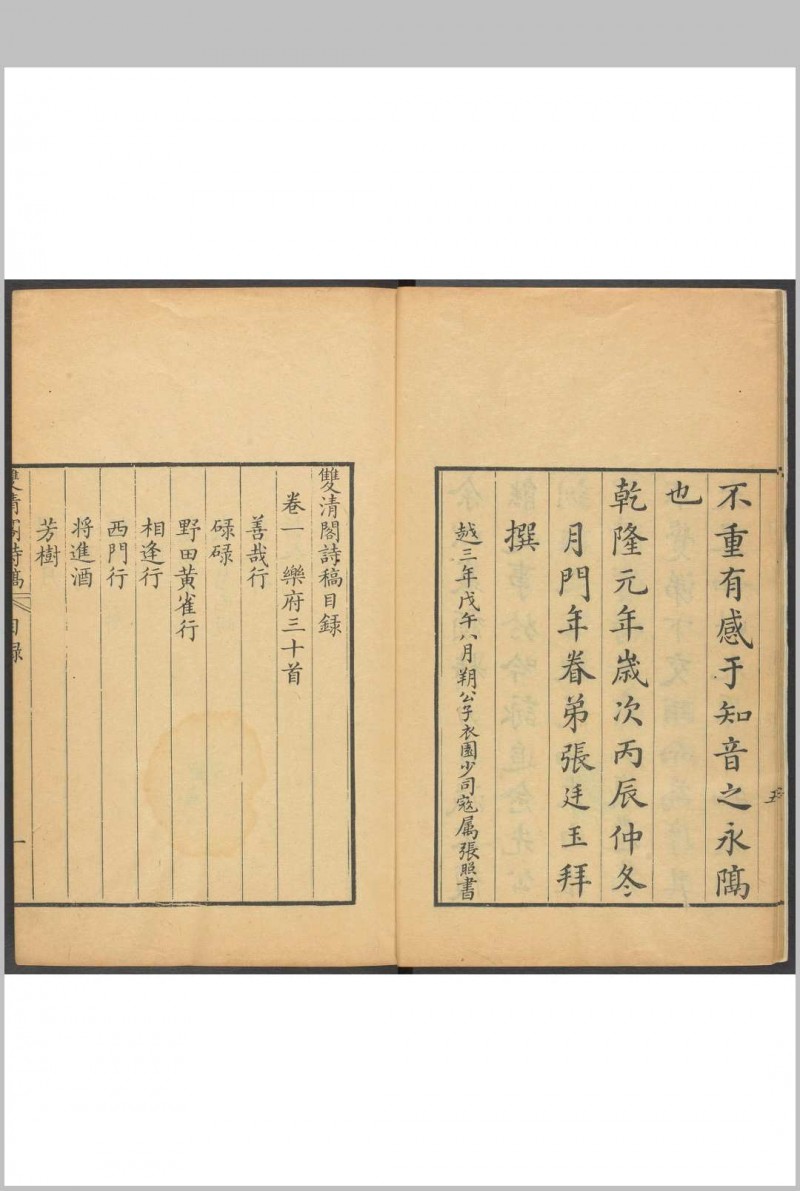 不重有感于知音之永隔
也
乾隆元年歲次丙辰仲冬
月門年眷弟張廷玉拜
撰
越三年戊午八月朔公子衣園少司寇属張照書
五
雙清閣詩稿目録
卷一 樂府三十首
善哉行
碌碌
野田黃雀行
相逢行
西門行
將進酒
芳樹
雙清閣詩稿 目録 一